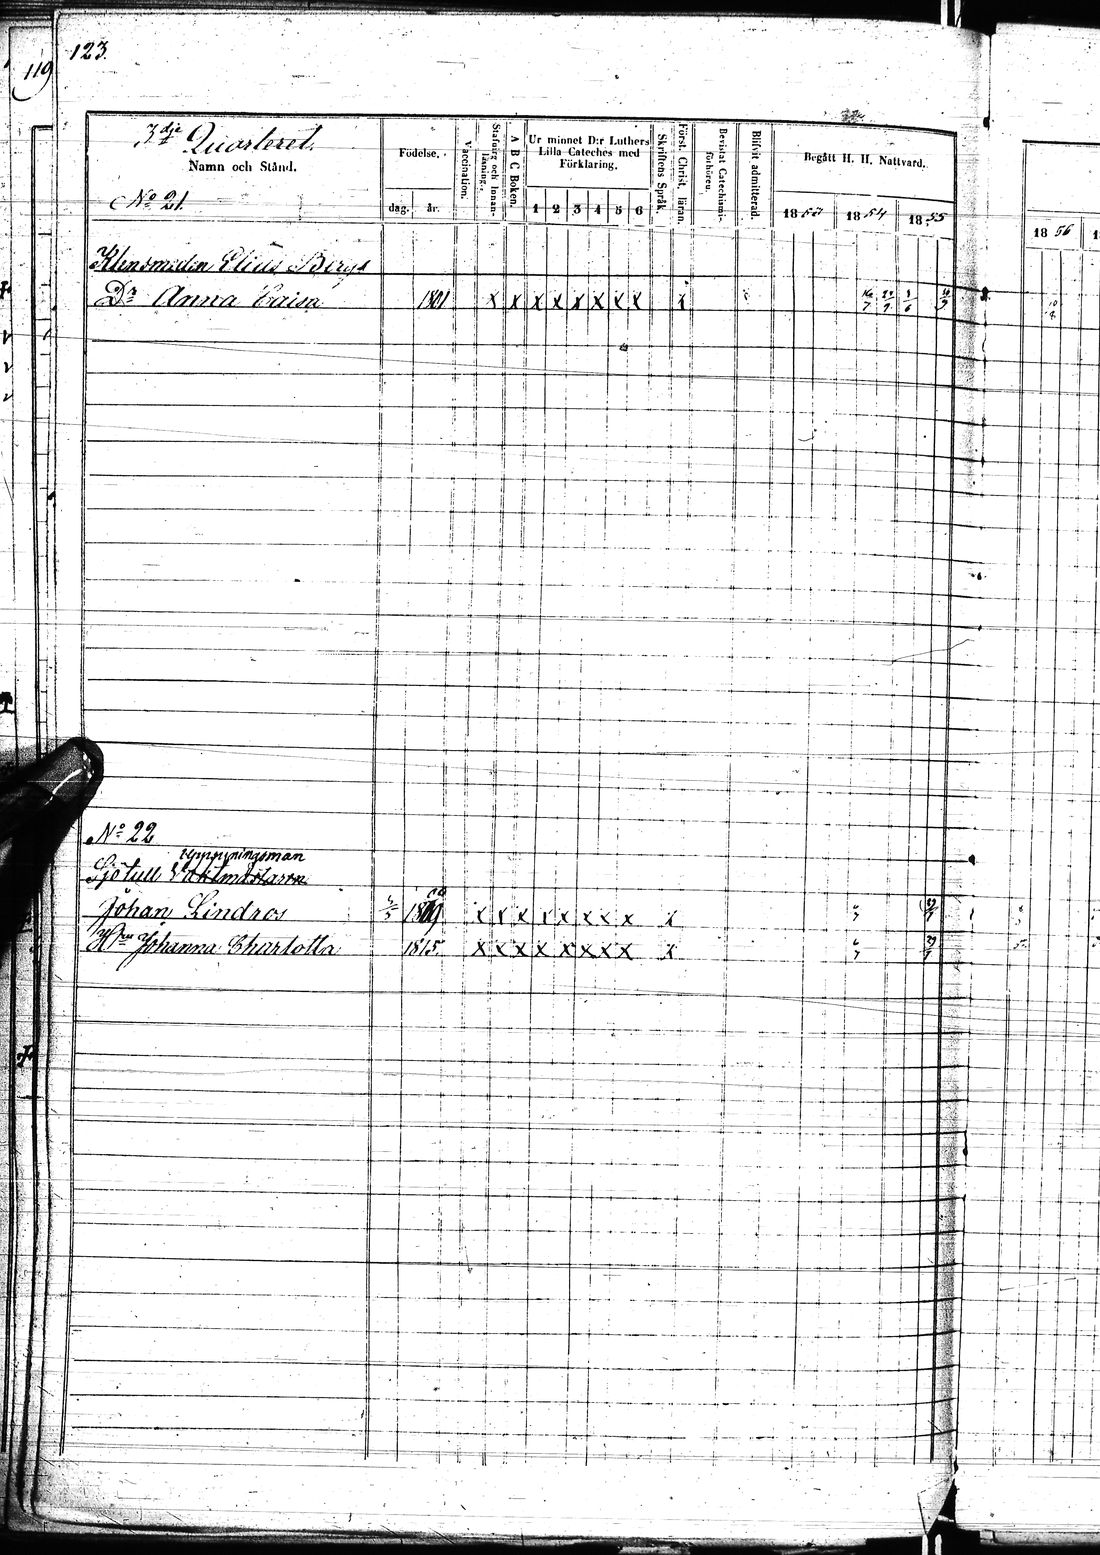 119
123.
3dje Quarteret.
Namn och Stånd.
No 21.
Födelse.
dag. år.
Vaccination.
Stafning och Innanläsning.
A B C Boken.
Ur minnet D:r Luthers Lilla Cateches med Förklaring.
1 2 3 4 5 6
Skriftens Språk.
Först. Christ. läran.
Bevistat Catechismiförhören.
Blifvit admitterad.
Begått H. H. Nattvard.
1853 1854 1855
1856
Klensmeden Elias Bergs
Dr Anna Caisa 1801 x x x x x x x x x
No 22
Uppsyningsman
Sjötull Vaktmästaren
Johan Lindros 1809 x x x x x x x x x
Hru Johanna Charlotta 1815. x x x x x x x x x